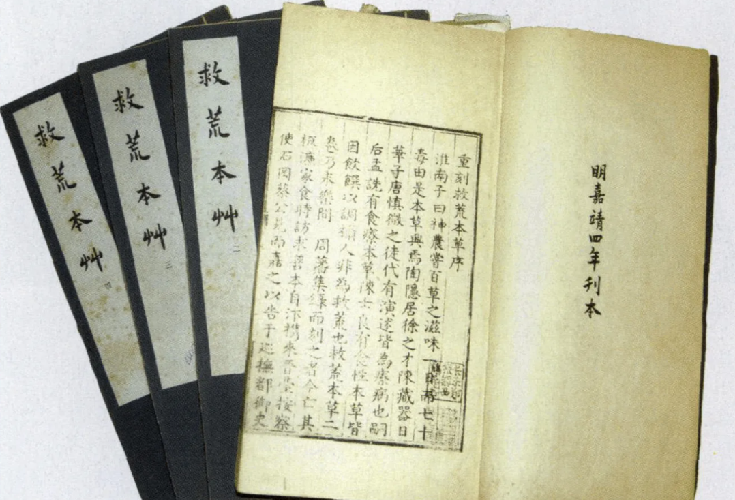 明嘉靖四年刊本
重刻救荒本草序
淮南子曰神農嘗百草之滋味一日而七十
毒由是本草興焉陶隱居徐之才陳藏器日
華子唐慎微之徒代有演述皆為療病也嗣
后孟詵有食療本草陳士良有食性本草皆
因飲饌以調攝人非為救荒也救荒本草二
卷乃永樂間 周藩集錄而刻之者今亡其
板濂家食時訪求善本自汴攜來晉臺按察
使石岡蔡公見而嘉之以告于巡撫都御史
救荒本艸 二
救荒本艸 三
救荒本艸 四